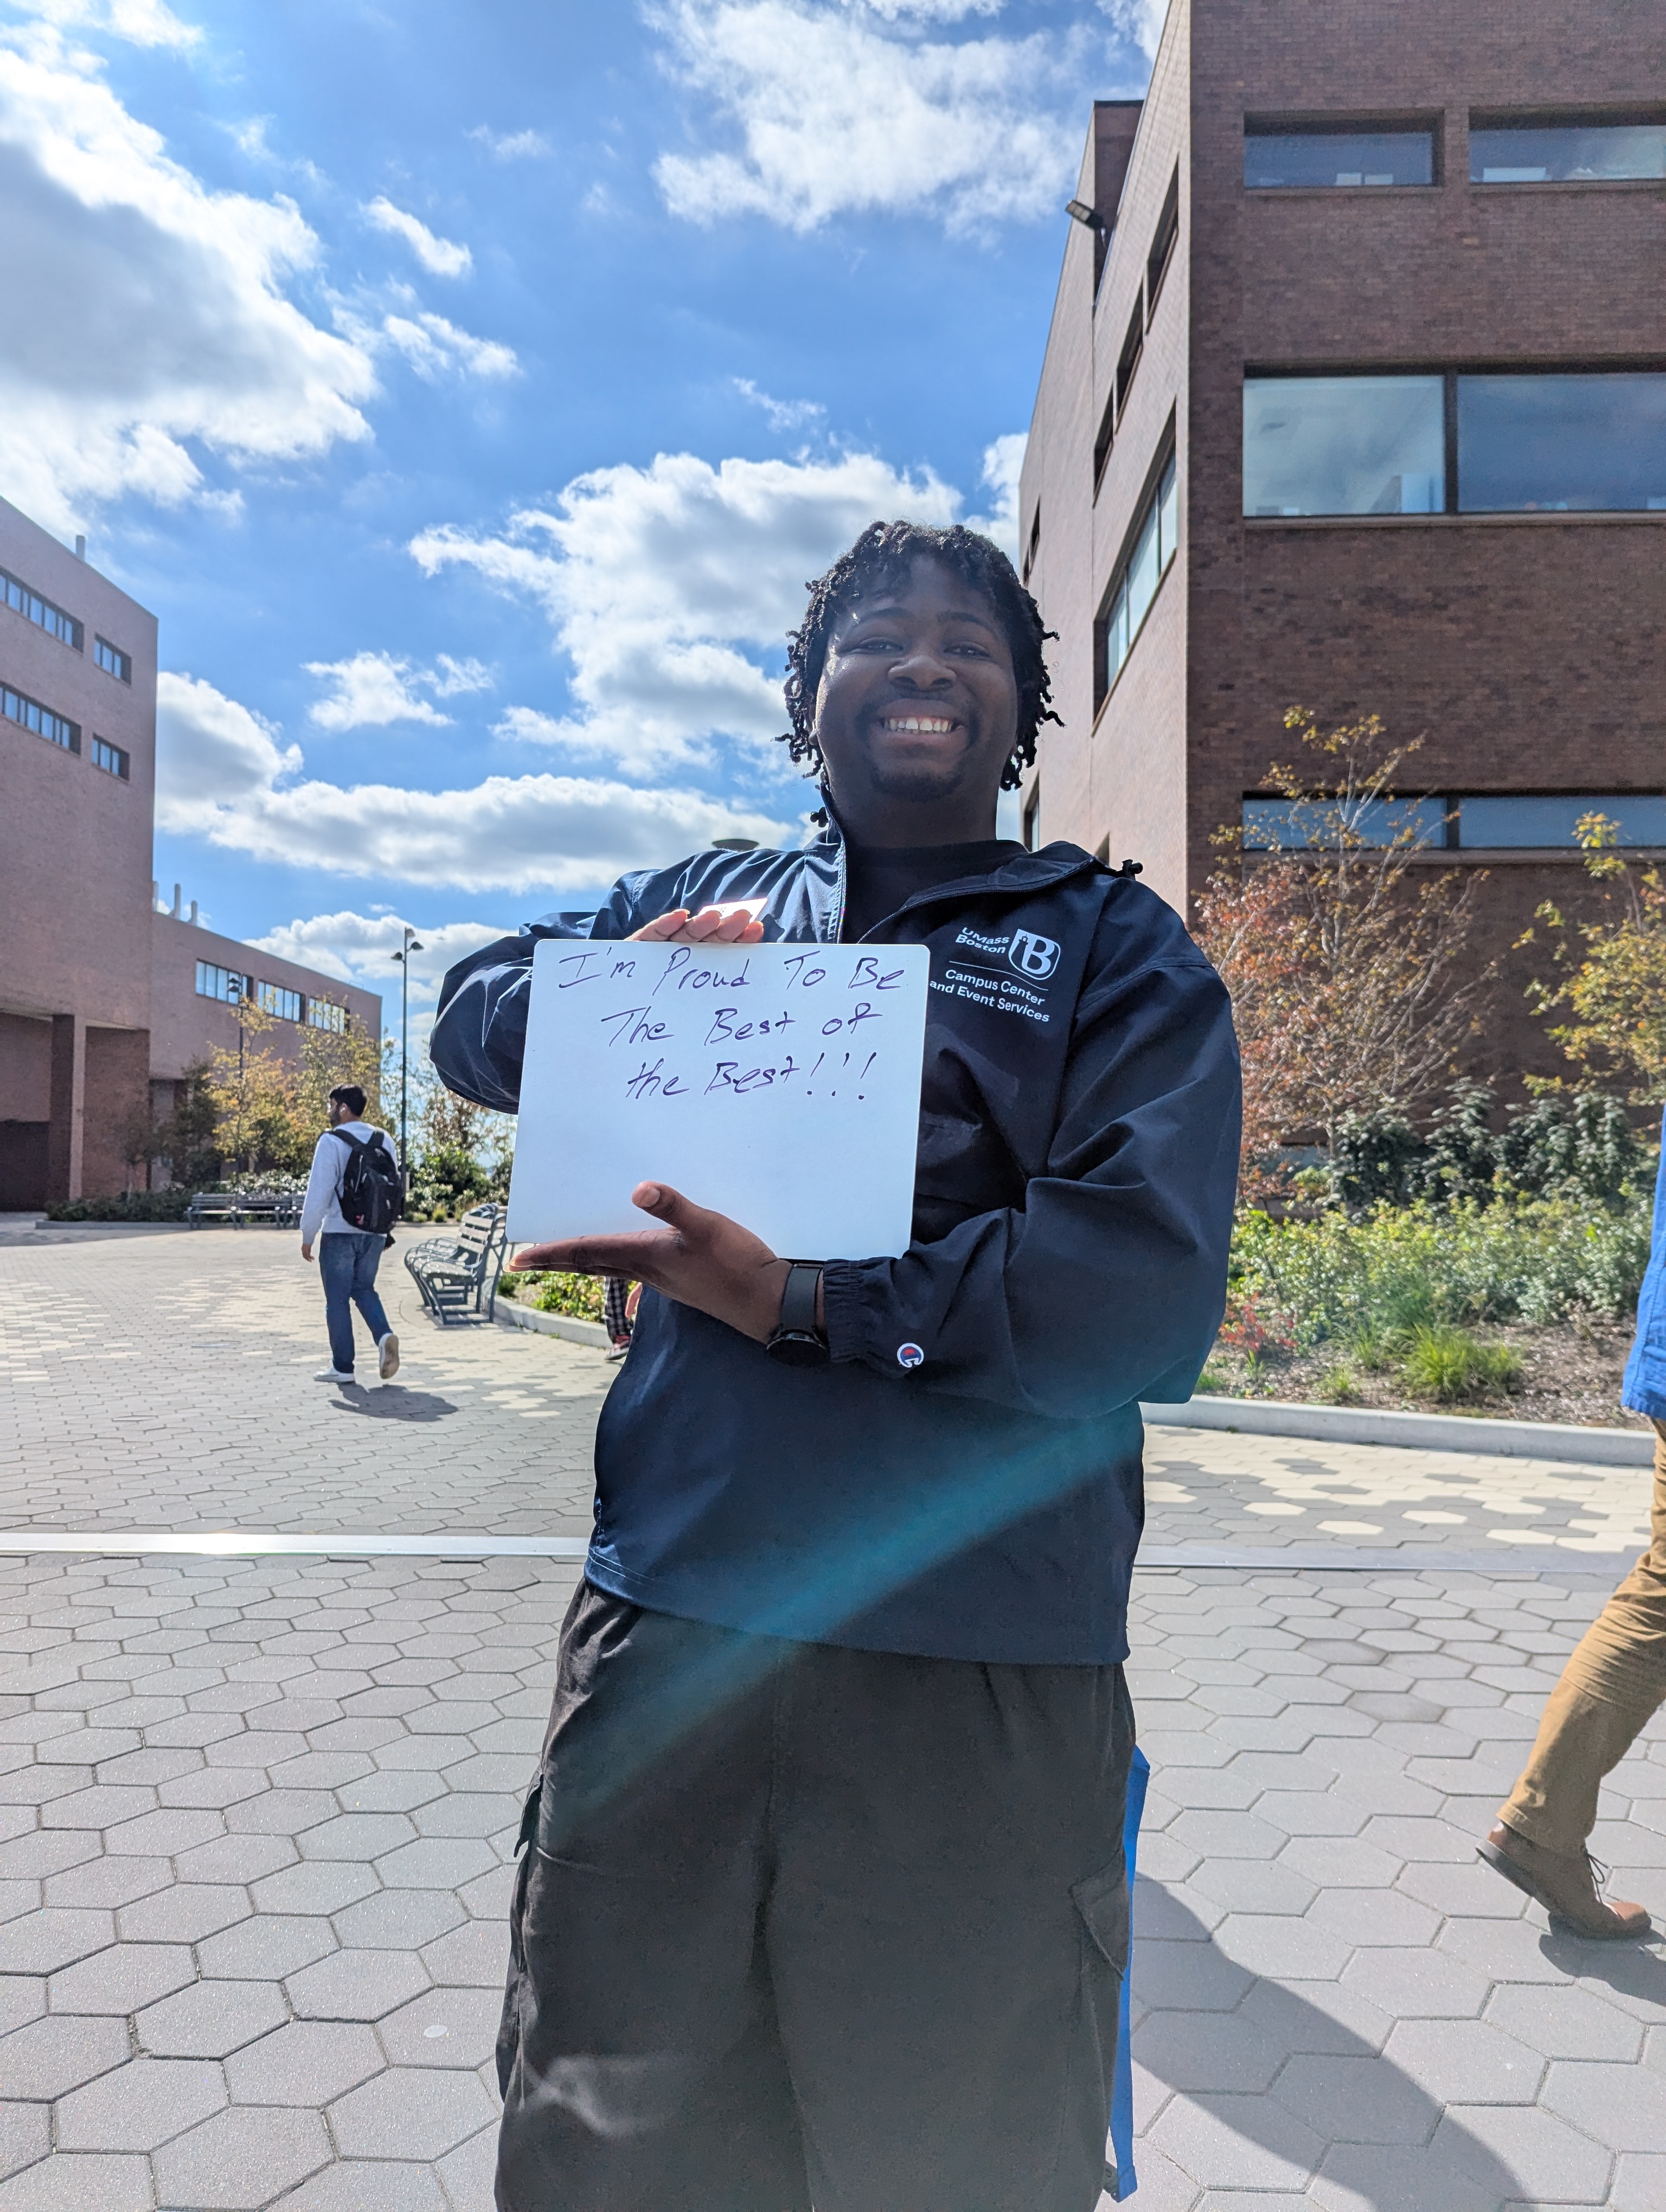 I'm Proud To Be
The Best of
the Best!!!
UMass
Boston
B
Campus Center
and Event Services